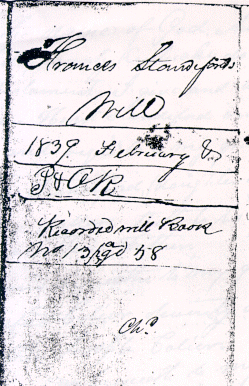 Frances Standiford's
Will
1839 February
P & O R
Recorded Will Book
No 13 pgd 58
Chd